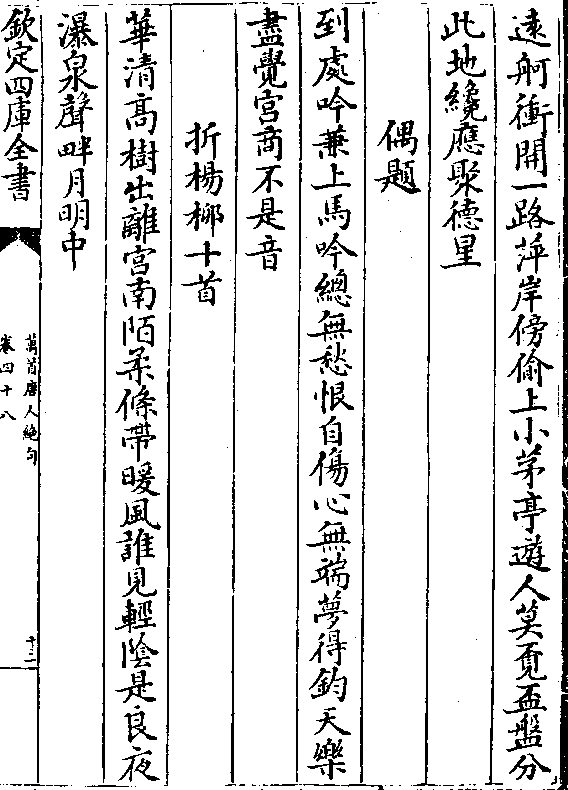 遠舸衝開一路萍岸傍偷上小茅亭遊人莫覔盃盤分
此地纔應聚德星
偶題
到處吟兼上馬吟總無愁恨自傷心無端夢得鈞天樂
盡覺宮商不是音
折楊柳十首
華清高樹出離宮南陌柔條帶暖風誰見輕陰是良夜
瀑泉聲畔月明中
欽定四庫全書
萬首唐人絶句
卷四十八
十二